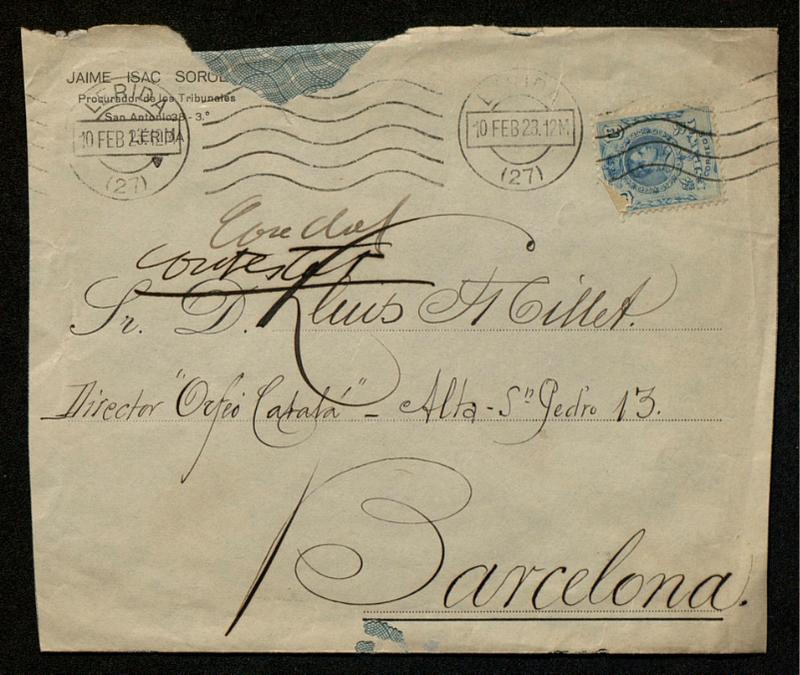 JAIME ISAC SOROL
Procurador de los Tribunales
San Antonio 38 - 3.º
LÉRIDA
LERIDA
10 FEB 23. 12M
(27)
LERIDA
10 FEB 23. 12M
(27)
contestat
Sr. D. Lluis Millet.
Director "Orfeó Catalá" - Alta - Sn Pedro 13.
Barcelona.